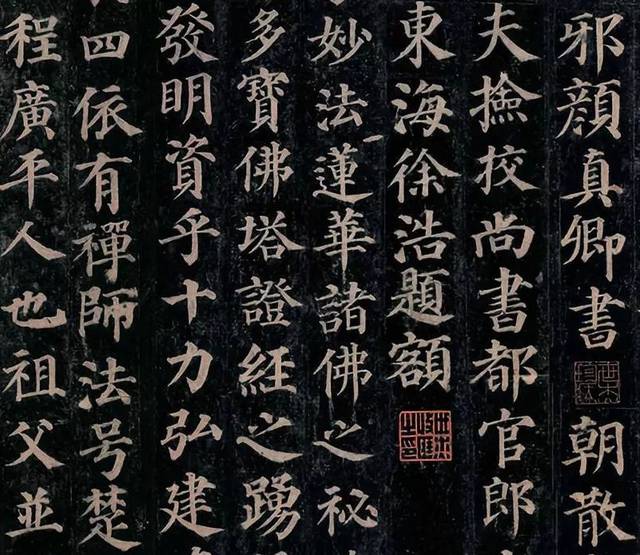 邪顏真卿書朝散
夫撿校尚書都官郎
東海徐浩題額
妙法蓮華諸佛之秘
多寶佛塔證經之踴
發明資乎十力弘建
四依有禪師法号楚
程廣平人也祖父並